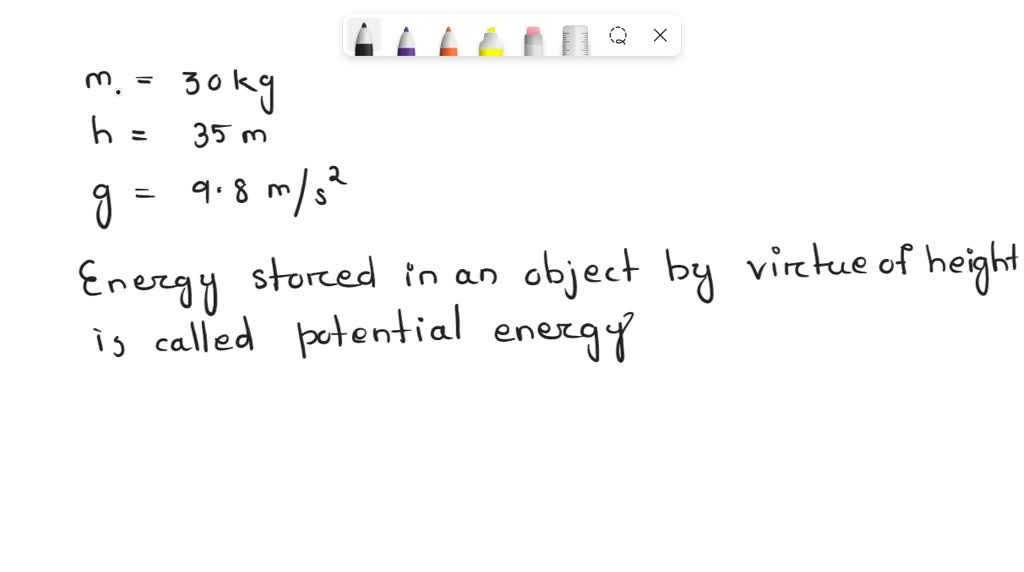 m. = 30 kg
h = 35 m
g = 9.8 m/s²
Energy stored in an object by virtue of height
is called potential energy